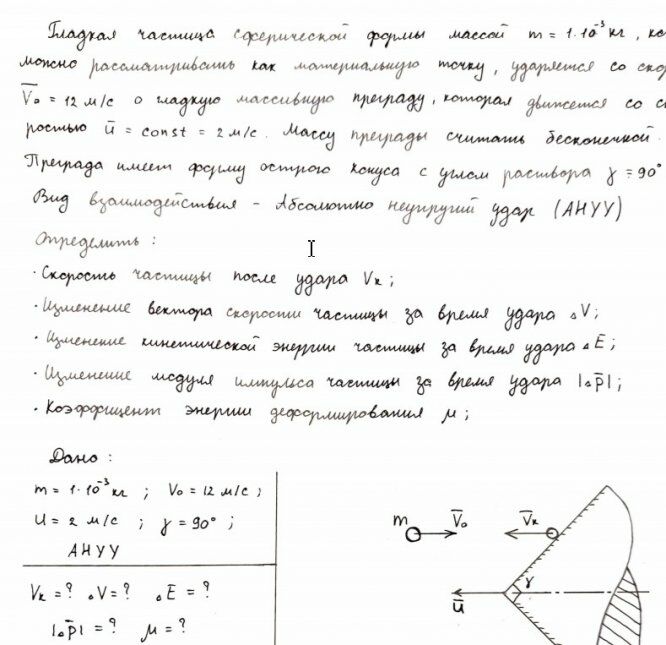 Гладкая частица сферической формы массой m = 1·10⁻³ кг, ко
можно рассматривать как материальную точку, ударяется со скор
V̅₀ = 12 м/с о гладкую массивную преграду, которая движется со с
ростью u̅ = const = 2 м/с. Массу преграды считать бесконечной.
Преграда имеет форму острого конуса с углом раствора γ = 90°
Вид взаимодействия – Абсолютно неупругий удар (АНУУ)
Определить:
· Скорость частицы после удара Vк;
· Изменение вектора скорости частицы за время удара ΔV;
· Изменение кинетической энергии частицы за время удара ΔE;
· Изменение модуля импульса частицы за время удара |Δp̅|;
· Коэффициент энергии деформирования μ;
Дано:
m = 1·10⁻³ кг ; V₀ = 12 м/с ;
U = 2 м/с ; γ = 90° ;
АНУУ
Vк = ? ΔV = ? ΔE = ?
|Δp̅| = ? μ = ?
m V̅₀ V̅к
γ
u̅